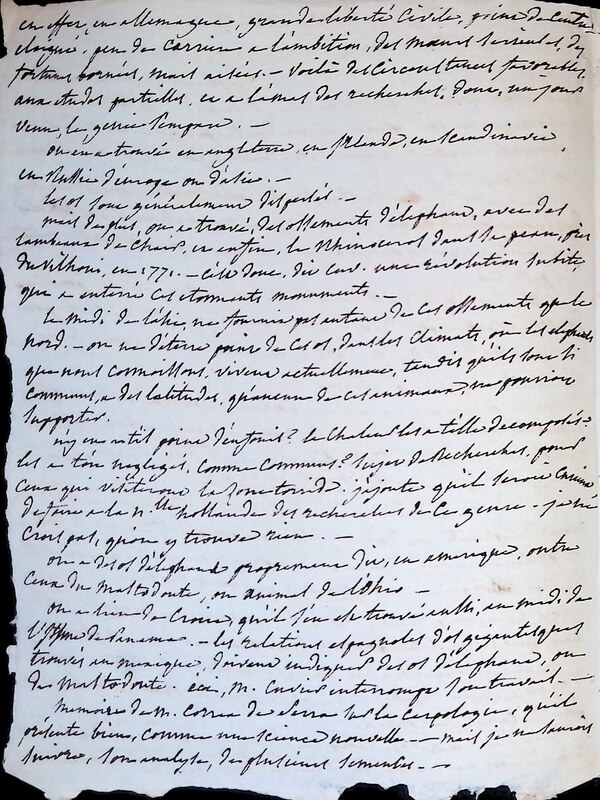 en effet, en allemagne, grande liberté civile, point de centre
unique, peu de carriere a l'ambition, des mœurs serieuses, des
fortunes bornées, mais aisées. — voila des circonstances favorables
aux etudes partielles, et a l'amas des recherches, dont, un jour
venu, le genie s'empare. —
on en a trouvé en angleterre, en irlande, en scandinavie,
en Russie d'europe ou d'asie. —
les os sont généralement dispersés. —
mais de plus, on a trouvé, des ossements d'élephant, avec des
lambeaux de chair, et enfin, le Rhinoceros dans sa peau, près
du Vilhoui, en 1771. — c'est donc, dit Cuv. une révolution subite,
qui a enterré ces etonnants monuments. —
le midi de l'asie, ne fournit pas autant de ces ossements que le
nord. — on ne déterre point de ces os, dans les climats, où les elephants
que nous connoissons, vivent actuellement, tandis qu'ils sont si
communs, a des latitudes, qu'aucun de ces animaux, ne pourroit
supporter.
n'y en a-t-il point d'enfouis? la chaleur les a t'elle decomposés?
les a t'on negligés, comme communs? sujet de Recherches, pour
ceux qui visiteront la Zone torride. j'ajoute qu'il seroit curieux
de faire a la n.lle hollande des recherches de ce genre. — je ne
crois pas, qu'on y trouve rien. —
on a des os d'élephant proprement dit, en amerique, outre
ceux du mastodonte, ou animal de l'Ohio —
on a lieu de croire, qu'il s'en est trouvé aussi, au midi de
l'isthme de Panama. — les relations espagnoles d'os gigantesques
trouvés au mexique, doivent indiquer des os d'elephant, ou
de mastodonte. ici, m. Cuvier interrompt son travail. —
memoire de m. Correa de Serra sur la carpologie, qu'il
présente bien, comme une science nouvelle — mais je ne saurois
suivre, son analyse, de plusieurs semences. —